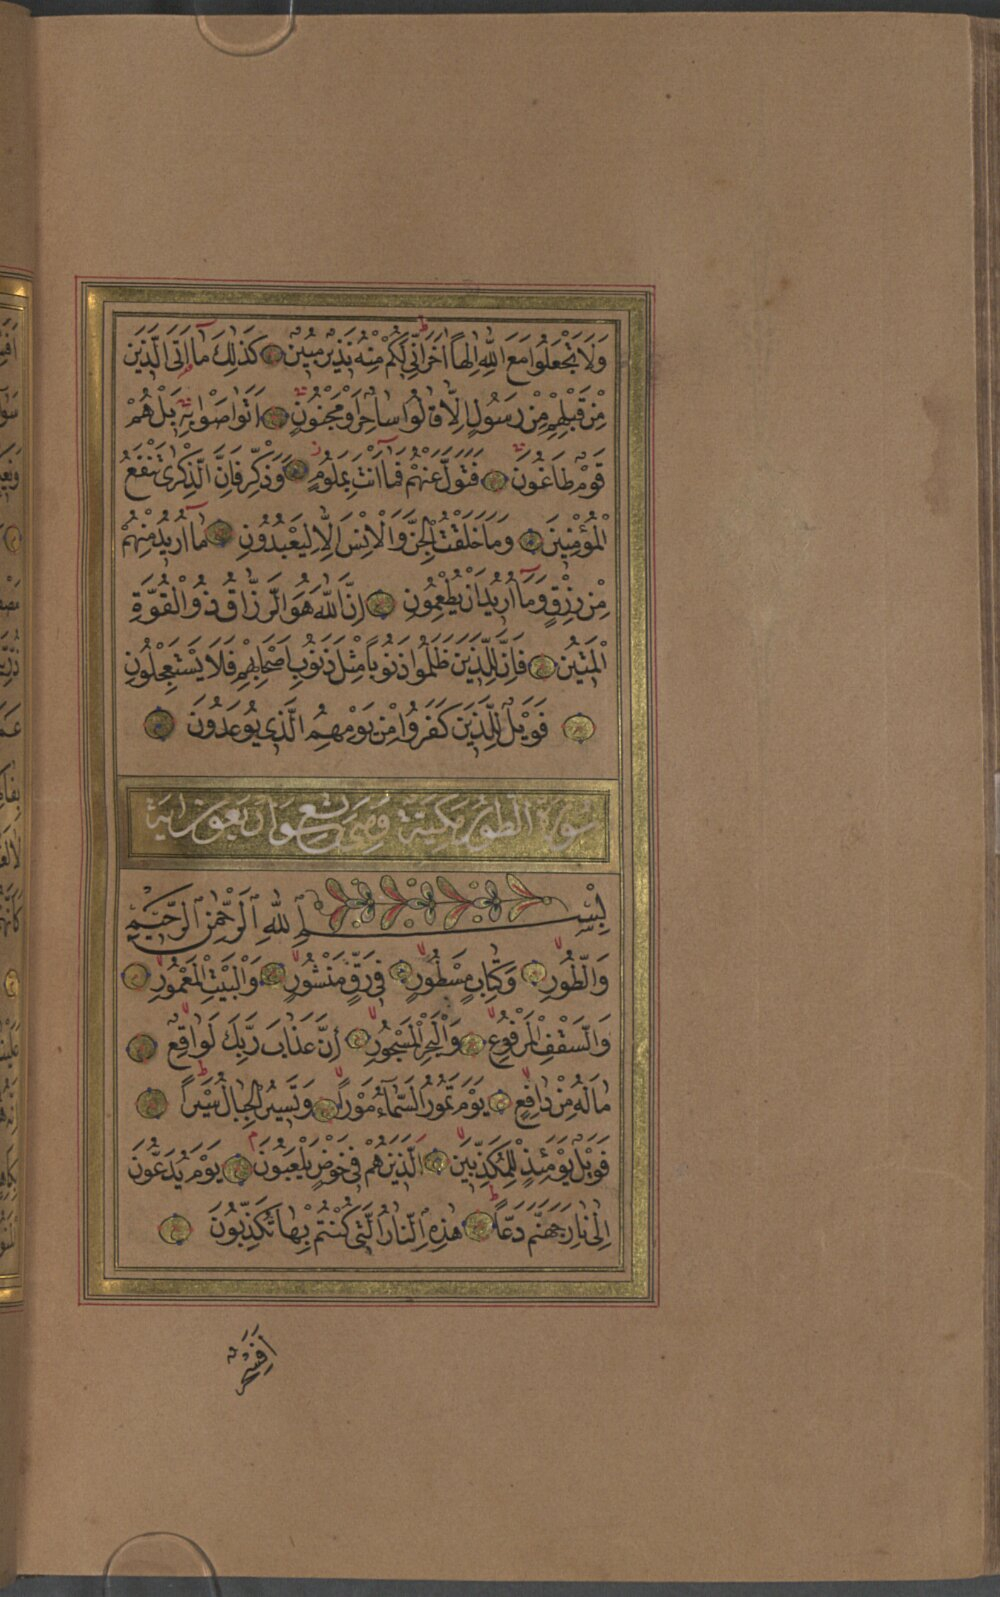 وَلَا تَجْعَلُوا مَعَ اللّٰهِ اِلٰهًا اٰخَرَ اِنّٖى لَكُمْ مِنْهُ نَذٖيرٌ مُبٖينٌ كَذٰلِكَ مَٓا اَتَى الَّذٖينَ
مِنْ قَبْلِهِمْ مِنْ رَسُولٍ اِلَّا قَالُوا سَاحِرٌ اَوْ مَجْنُونٌ اَتَوَاصَوْا بِهٖ بَلْ هُمْ
قَوْمٌ طَاغُونَ فَتَوَلَّ عَنْهُمْ فَمَٓا اَنْتَ بِمَلُومٍ وَذَكِّرْ فَاِنَّ الذِّكْرٰى تَنْفَعُ
الْمُؤْمِنٖينَ وَمَا خَلَقْتُ الْجِنَّ وَالْاِنْسَ اِلَّا لِيَعْبُدُونِ مَٓا اُرٖيدُ مِنْهُمْ
مِنْ رِزْقٍ وَمَٓا اُرٖيدُ اَنْ يُطْعِمُونِ اِنَّ اللّٰهَ هُوَ الرَّزَّاقُ ذُو الْقُوَّةِ
الْمَتٖينُ فَاِنَّ لِلَّذٖينَ ظَلَمُوا ذَنُوبًا مِثْلَ ذَنُوبِ اَصْحَابِهِمْ فَلَا يَسْتَعْجِلُونِ
فَوَيْلٌ لِلَّذٖينَ كَفَرُوا مِنْ يَوْمِهِمُ الَّذٖى يُوعَدُونَ
سُورَةُ الطُّورِ مَكِّيَّةٌ وَهِىَ تِسْعٌ وَاَرْبَعُونَ اٰيَةً
بِسْمِ اللّٰهِ الرَّحْمٰنِ الرَّحٖيمِ
وَالطُّورِ وَكِتَابٍ مَسْطُورٍ فٖى رَقٍّ مَنْشُورٍ وَالْبَيْتِ الْمَعْمُورِ
وَالسَّقْفِ الْمَرْفُوعِ وَالْبَحْرِ الْمَسْجُورِ اِنَّ عَذَابَ رَبِّكَ لَوَاقِعٌ
مَا لَهُ مِنْ دَافِعٍ يَوْمَ تَمُورُ السَّمَٓاءُ مَوْرًا وَتَسٖيرُ الْجِبَالُ سَيْرًا
فَوَيْلٌ يَوْمَئِذٍ لِلْمُكَذِّبٖينَ اَلَّذٖينَ هُمْ فٖى خَوْضٍ يَلْعَبُونَ يَوْمَ يُدَعُّونَ
اِلٰى نَارِ جَهَنَّمَ دَعًّا هٰذِهِ النَّارُ الَّتٖى كُنْتُمْ بِهَا تُكَذِّبُونَ
اَفَسِحْرٌ